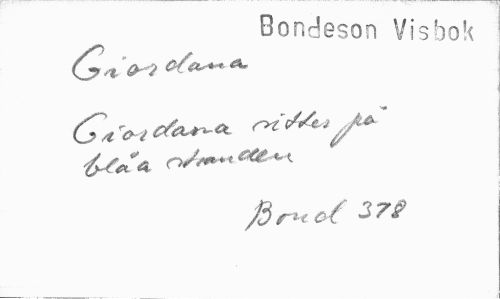 Bondeson Visbok
Giordana
Giordana sitter på
blåa stranden
Bond 378